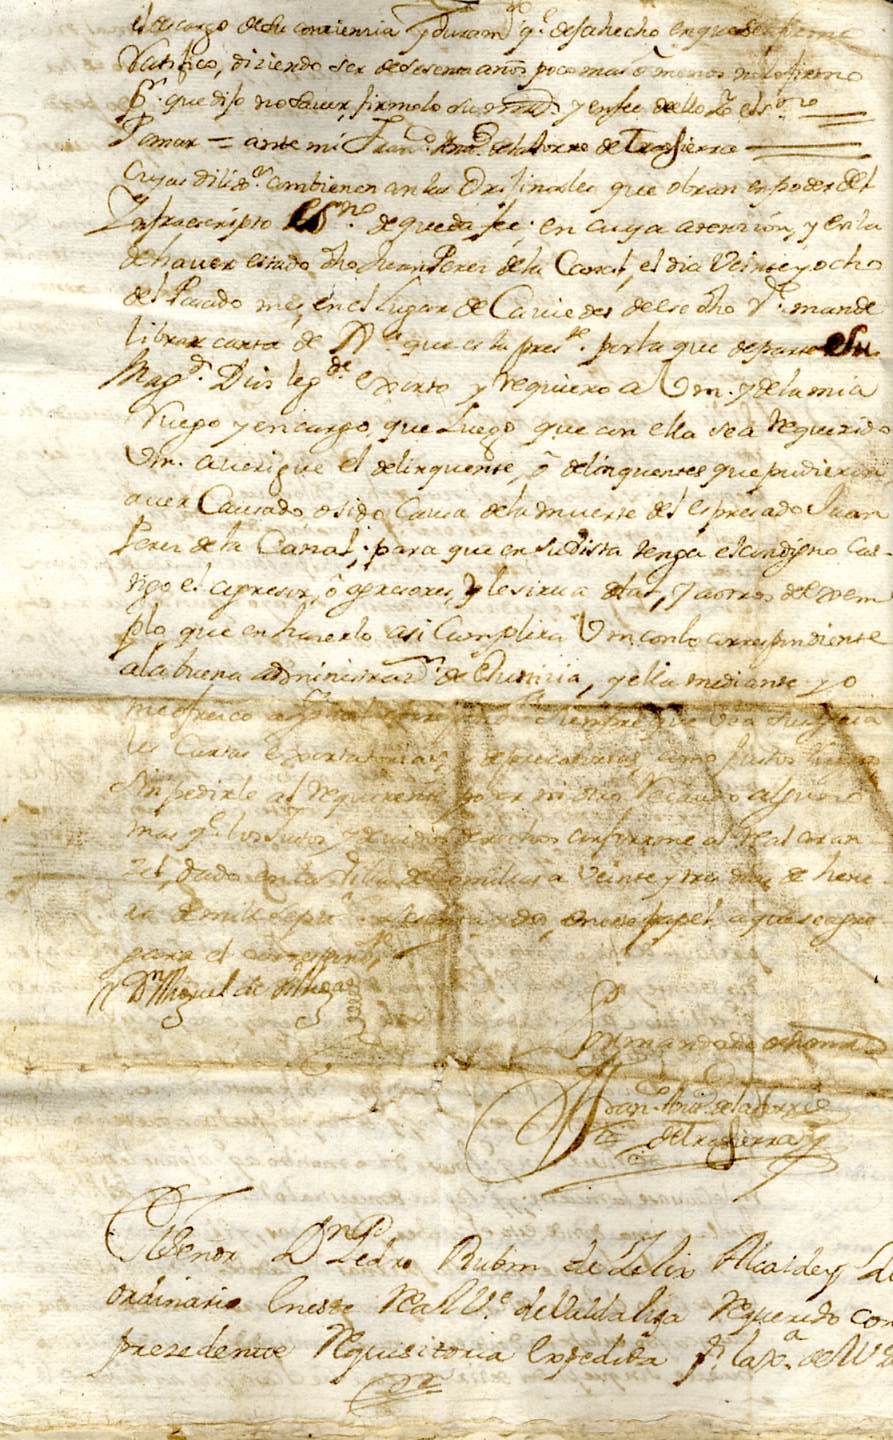 el descargo de su conciencia y juram.to q.e desa hecho en que se
Ratifico, diziendo ser de sesenta años poco mas ó menos no lo firmo
p.r que dijo no saver, firmolo su md y en fee de ello Yo el ss.no
Pomar = ante mi Fran.co Ant.o de la torre de Trasierra
Cuyas dilix.s combienen con las Orixinales que obran en poder del
Infraescripto Ess.no de que da fee; en cuya atenzion, y en la
de haver estado dho Juan Perez de la Canal, el dia Veinte y ocho
del Pasado mes, en el Lugar de Caviedes de ese dho V.e mande
librar carta de R.a que es la pres.te por la que de parte de su
Mag.d Dios le g.de exorto y requiero a Vm. y de la mia
Ruego y encargo, que Luego que con ella sea requerido
Vm. averigue el delinquente, ó delinquentes que pudieron
aver Causado o sido Causa de la muerte del espresado Juan
Perez de la Canal; para que en su Vista tenga el condigno Cas-
tigo el agresor, ó agresores, y le sirva a el, y a otros de exem
plo, que en hacerlo asi Cumplira Vm con lo correspondiente
a la buena administraz.n de Justicia, y ella mediante yo
me ofrezco a siempre que Vea sus
las Cartas exortatorias, y deprecatorias, como justas
sin pedirle al requirente poder ni otro recaudo alguno
mas q.e los justos, y devidos derechos conforme al Real aran
zel, dado en la Villa de Comillas a Veinte y tres dias de hene
ro de mill setez.s y dos, en este papel a que se agre
para el correspond.te
D.n Miguel de
Por mandado de su mrd
Fran.co Ant.o de la torre
de Trasierra
El Señor D.n Pedro Rubin de Zelix Alcalde y
ordinario en este Real V.e de Valdaliga requerido con
prezedente Requisitoria expedida p.r la x.a de